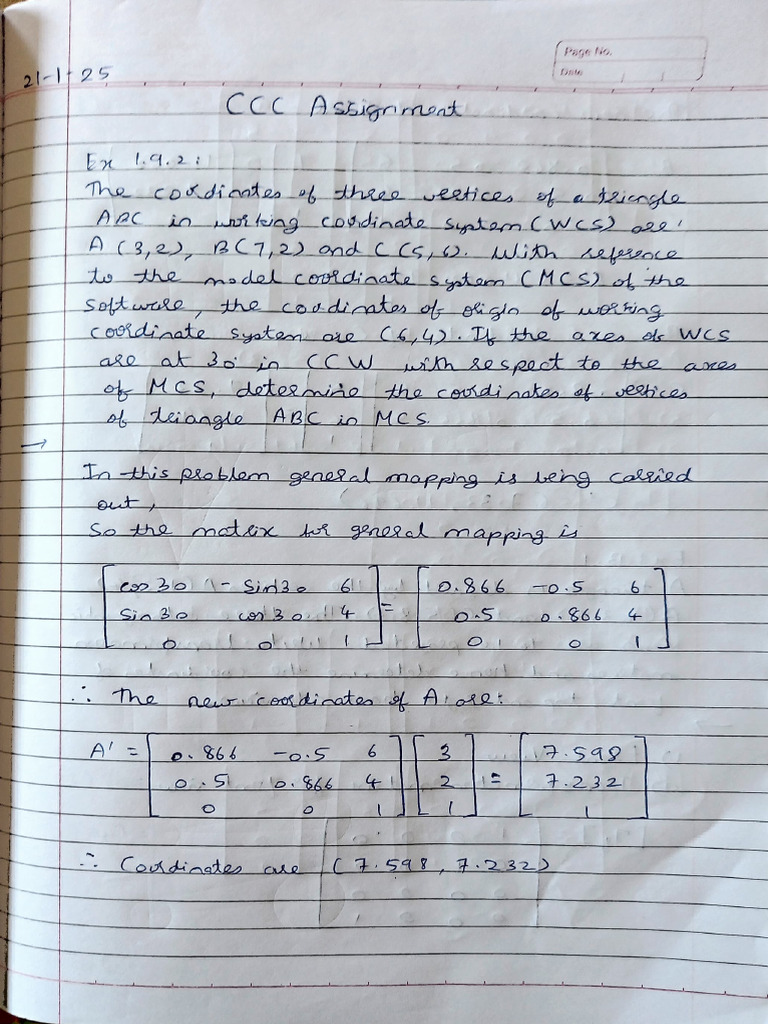 Page No.
Date
21-1-25
CCC Assignment
Ex 1.9.2:
The coordinates of three vertices of a triangle
ABC in working coordinate system (WCS) are:
A (3,2), B(7,2) and C (5,6). With reference
to the model coordinate system (MCS) of the
software, the coordinates of origin of working
coordinate system are (6,4). If the axes of WCS
are at 30° in CCW with respect to the axes
of MCS, determine the coordinates of vertices
of triangle ABC in MCS.
→
In this problem general mapping is being carried
out,
So the matrix for general mapping is
[cos 30 - sin 30 6] = [0.866 -0.5 6]
[sin 30 cos 30 4] [0.5 0.866 4]
[0 0 1] [0 0 1]
∴ The new coordinates of A are:
A' = [0.866 -0.5 6] [3] = [7.598]
[0.5 0.866 4] [2] [7.232]
[0 0 1] [1] [1]
∴ Coordinates are (7.598, 7.232)